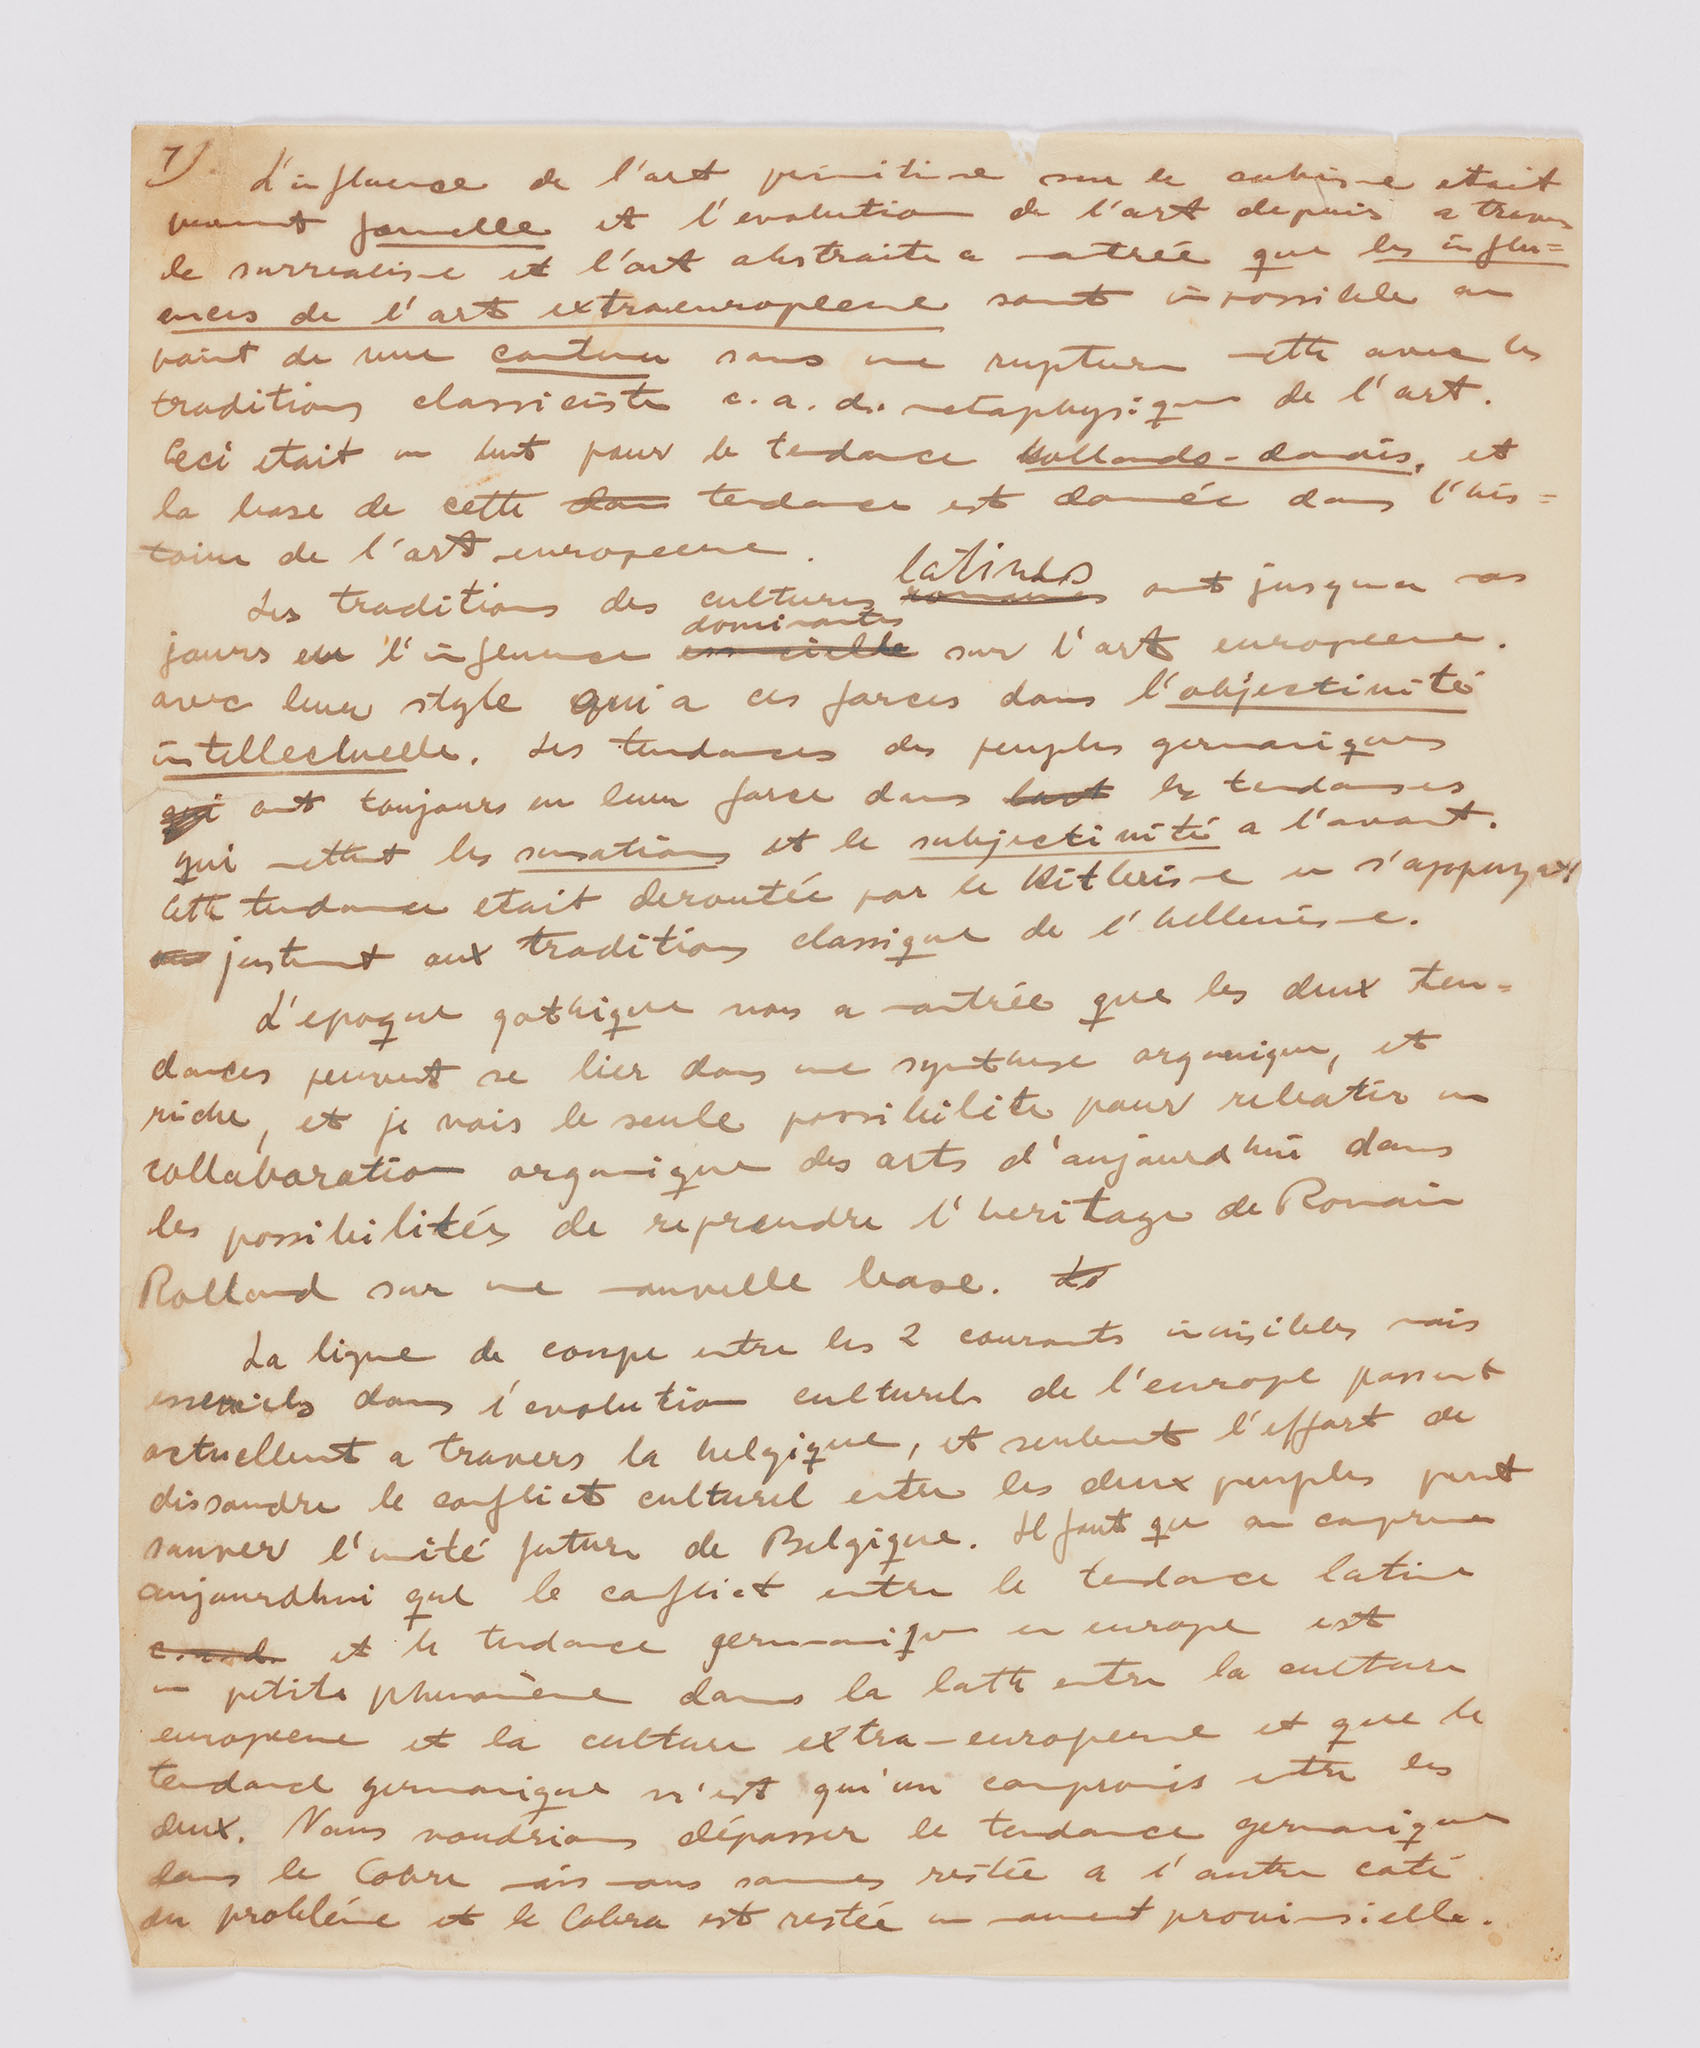 7) L'influence de l'art primitive sur le cubisme etait
purment formelle et l'evolution de l'art depuis a travers
le surrealisme et l'art abstraite a montrée que les influ=
ences de l'art extraeuropeene sont impossible au
point de vue contenu sans une rupture nette avec les
traditions classiciste c.a.d. metaphysique de l'art.
Ceci etait un but pour le tendance hollando-danois, et
la base de cette dan tendance est donnée dans l'his=
toire de l'art europeene.
Les traditions des cultures romanes latines ont jusqua nos
jours eu l'influence essencielle dominantes sur l'art europeene.
avec leur style qui a ces forces dans l'objectivité
intellectuelle. Les tendances des peuples germaniques
qui ont toujours eu leur force dans les tendanses
qui mettent les sensations et le subjectivité a l'avant.
Cette tendance etait deroutée par le Hitlerisme en s'appuyant
justement aux traditions classique de l'hellenisme.
L'epoque gothique nous a montrée que les deux ten=
dances peuvent se lier dans une synthese organique, et
riche, et je vois le seule possibilite pour rebatir un
collaboration organique des arts d'aujourdhui dans
les possibilités de reprendre l'heritage de Romain
Rolland sur une nouvelle base. Le
La ligne de coupe entre les 2 courants invisibles mais
essenciels dans l'evolution culturels de l'europe passent
actuellent a travers la belgique, et seulent l'effort de
dissoudre le conflict culturel entre les deux peuples peut
sauver l'unité future de Belgique. Il faut que on comprene
aujourdhui que le conflict entre le tendance latine
c.a.d. et le tendance germanique en europe est
un petite phenomène dans la lutte entre la culture
europeene et la culture extra-europeene et que le
tendance germanique n'est qu'un compromis entre les
deux. Nous voudrions dépasser le tendance germanique
dans le Cobra mais nous sommes restée a l'autre coté
du probléme et le Cobra est restée un mouvement provinsielle.